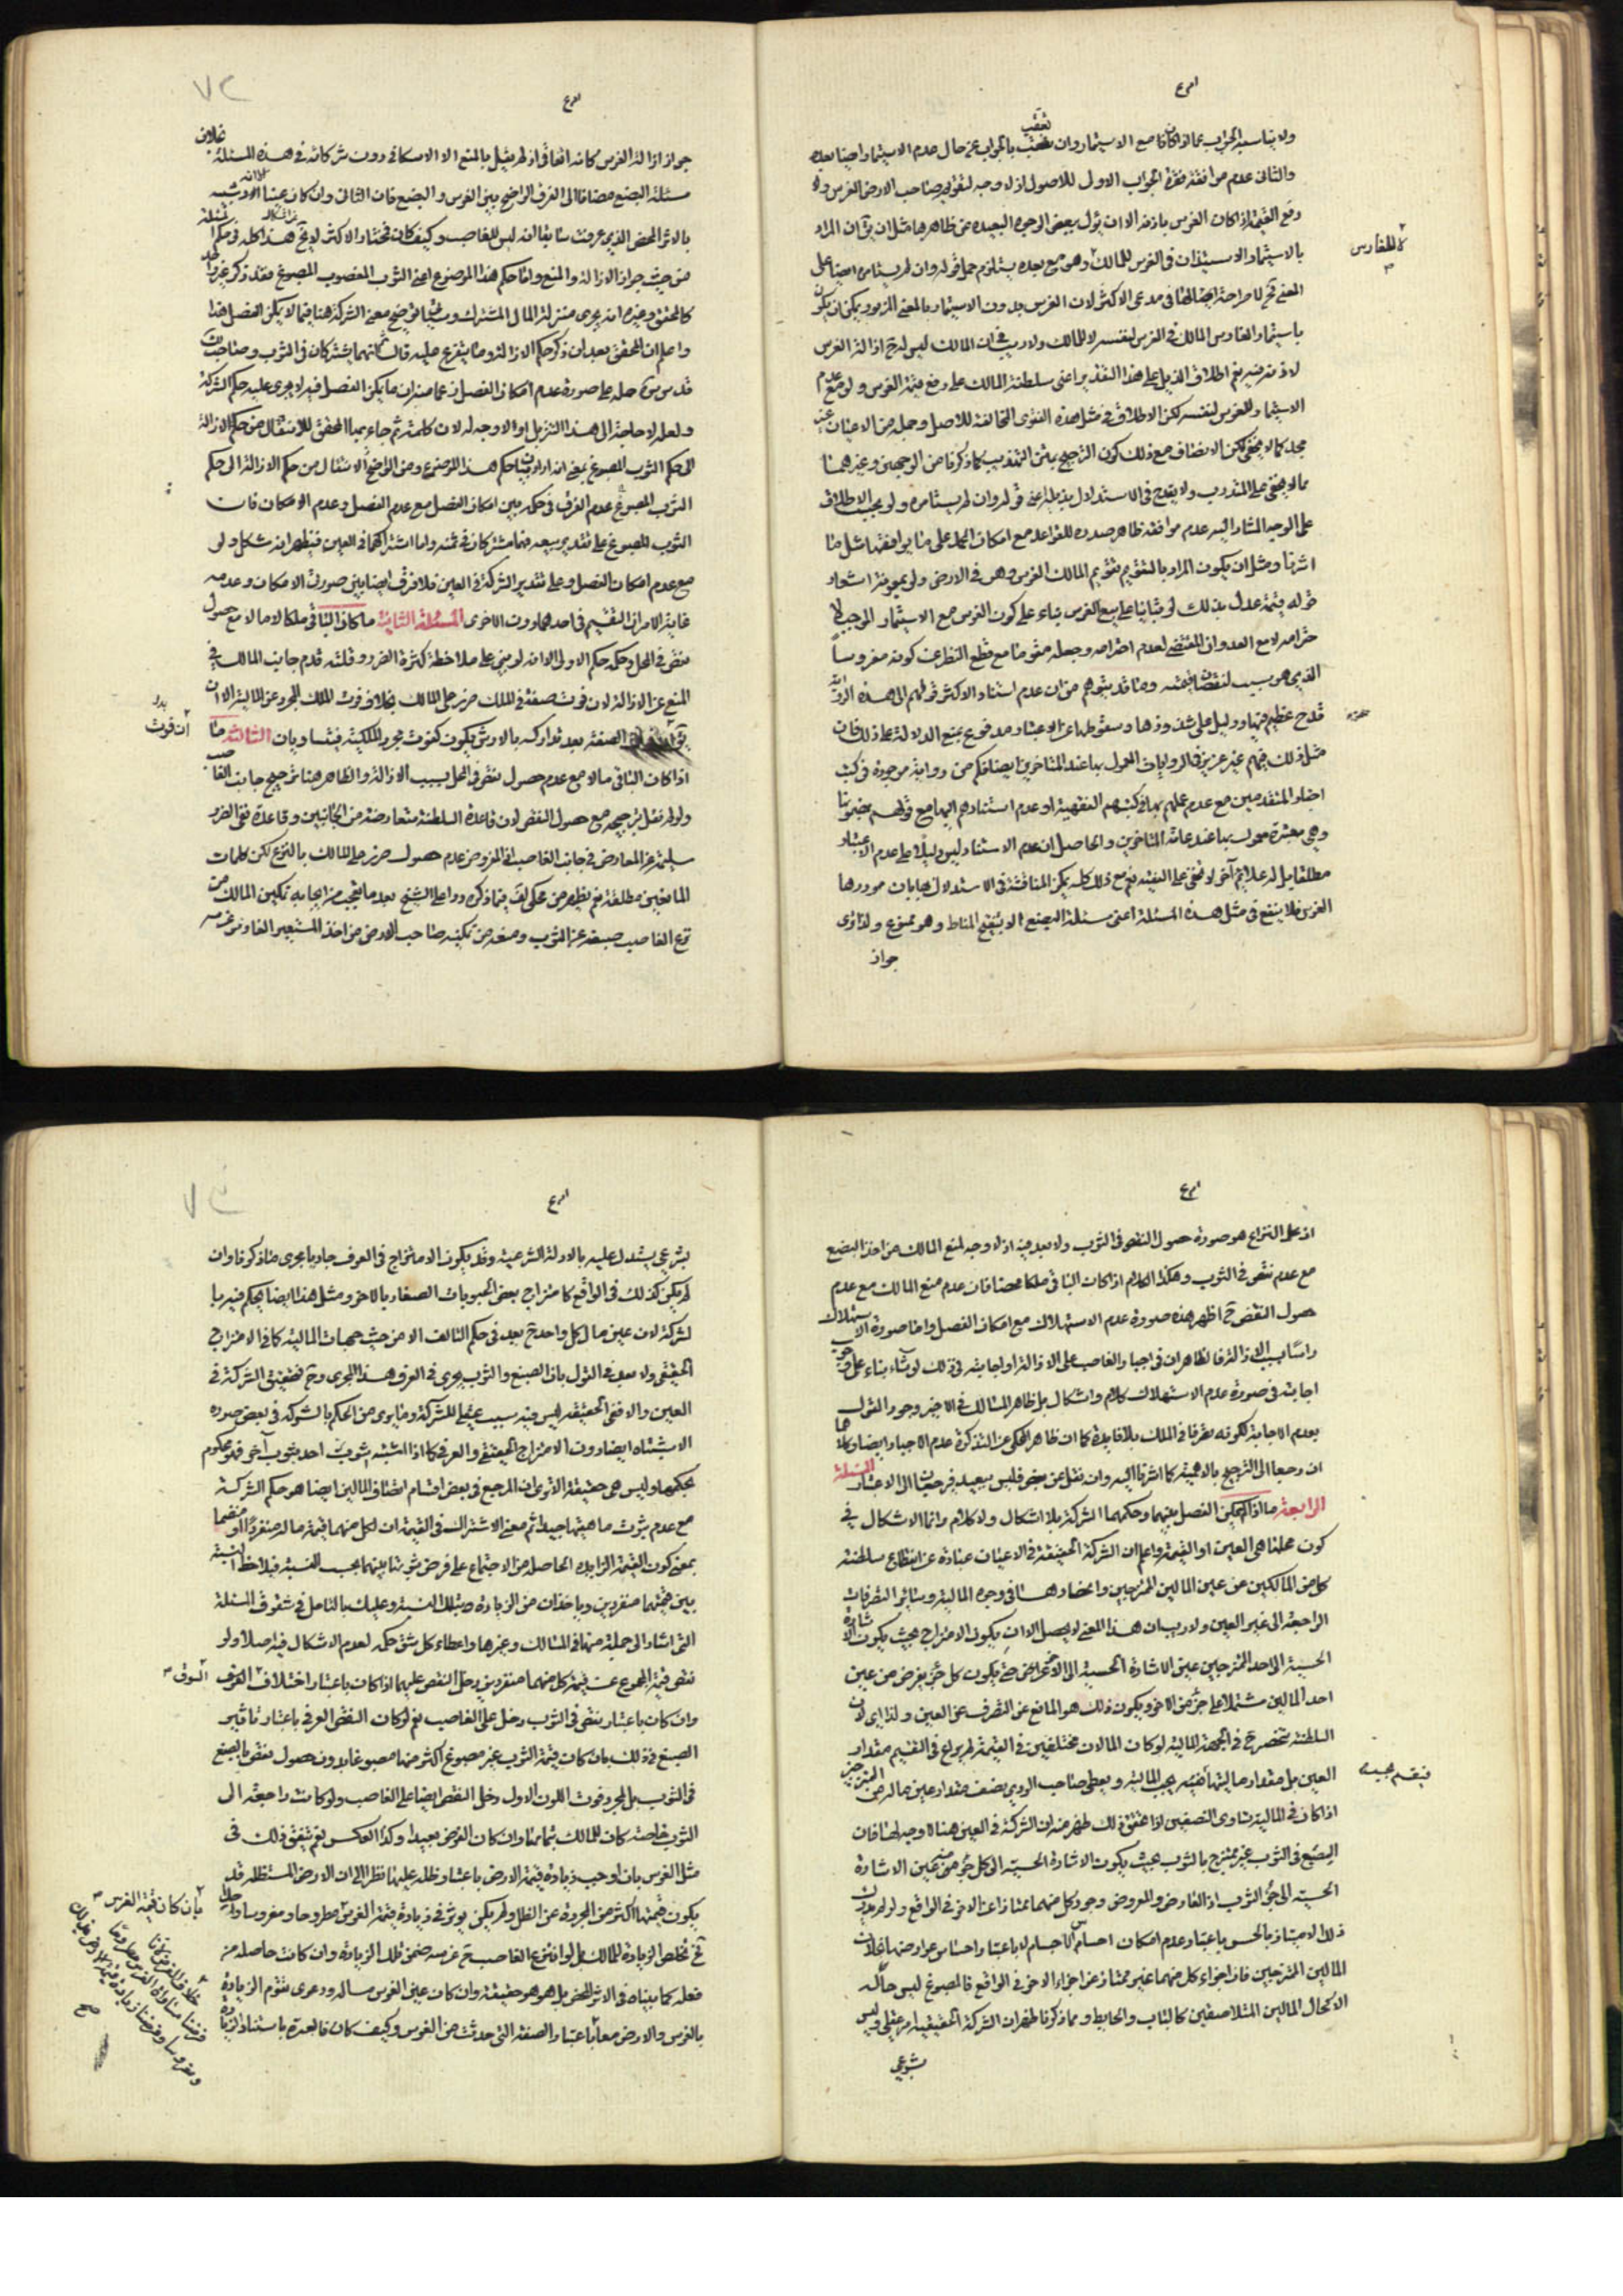 ولا يناسبه الجواب عما اذا كان قاصع الاستيمار وان تعقب بالجواب عن حال عدم الاستيمار ايضا بعده
والثاني عدم موافقة فقرة الجواب الاول للاصول اذ لا وجه لتقويم صاحب الارض الغرس ولا
دفع القيمة اذا كان الغرس باذنه الا ان يؤل ببعض الوجوه البعيدة عن ظاهرها مثل ان المراد
بالاستيمار الاستيذان في الغرس للمالك وهو مع بعده يستلزم حمل قوله وان لم يستامره ايضا على
باستيمار الغارس المالك في الغرس لنفسه لا للمالك ولا ريب في ان المالك ليس له ازالة الغرس
الاستيمار للغرس لنفسه لكن الاطلاق في مثل هذه الفتوى المخالفة للاصل وحمله من الاعيان
مجد كما لا يخفى لكن الانصاف مع ذلك كون الترجيح
مما لا يخفى على المتدرب ولا يقدح في الاستدلال بذيله اعني قوله وان لم يستامره ولو بحسب الاطلاق
على الوجه المشار اليه عدم موافقة ظاهر صدره للقواعد مع امكان الحمل على ما يوافقها مثل ما
اشرنا ومثل ان يكون المراد بالتقويم تقويم المالك الغرس وهو في الارض ولو بمعونة اشعار
قوله قيمة عدل بذلك لو بنيا على بيع الغرس بناء على كون الغرس مع الاستيمار الموجب لا
حترامه لا مع العدوان المقتضي لعدم احترامه وجعله مقوما مع قطع النظر عن كونه مغروسا
الذي هو سبب لنقصان قيمته وما قد يتوهم من ان عدم استناد الاكثر قولهم الى هذه الرواية
قدح عظيم فيها ودليل على شذوذها وسقوطها عن الاعتبار مدفوع بمنع الدلالة على ذلك فان
مثل ذلك فيهم غير عزيز في الروايات المعمول بها عند المتاخرين ايضا فكم من رواية موجودة في كتب
اخبار المتقدمين مع عدم عملهم بها في كتبهم الفقهية او عدم استنادهم اليها مع قولهم بمضمونها
وهي معتبرة معمول بها عند عامة المتاخرين والحاصل ان عدم الاستناد ليس دليلا على عدم الاعتبار
مطلقا بل له علائم اخر لا تخفى على الفقيه نعم مع ذلك كله يمكن المناقشة في الاستدلال بها بان موردها
الغرس فلا ينفع في مثل هذه المسئلة اعني مسئلة الصبغ الا بتنقيح المناط وهو ممنوع ولذا ترى
جواز
لا للغارس
جواز ازالة الغرس كانه اتفاقي اذ لم يقل بالمنع الا الاسكافي دون شركائه في هذه المسئلة بخلاف
مسئلة الصبغ مضافا الى الفرق الواضح بين الغرس والصبغ فان الثاني وان كان عينا الا انه اشبه
بالاثر المحض الذي عرفت سابقا انه ليس للغاصب وكيف كان فمختار الاكثر
من حيث جواز الازالة والمنع واما حكم هذا الموضوع اعني الثوب المغصوب المصبوغ فقد ذكر غير واحد
كالمحقق وغيره انه يجري منزلة المال المشترك
واعلم ان المحقق بعد ان ذكر حكم الازالة وما يتفرع عليه قال ثم انهما يشتركان في الثوب وصاحب
قدس سره حمله على صورة عدم امكان الفصل زعما منه ان ما يمكن الفصل فيه لا يجري عليه حكم الشركة
ولعله لا حاجة الى هذا التنزيل اولا وجه له لان كلمة ثم جاء بها المحقق للانتقال من حكم الازالة
الى حكم الثوب المصبوغ بمعنى انه اراد بيان حكم هذا الموضوع ومن الواضح الانتقال من حكم الازالة الى حكم
الثوب المصبوغ عدم الفرق في حكمه بين امكان الفصل مع عدم الفصل وعدم الامكان فان
الثوب المصبوغ على تقدير بيعه فهما مشتركان في ثمنه واما اشتراكهما في العين فيظهر انه مشكل ولو
مع عدم امكان الفصل وعلى تقدير الشركة في العين فلا فرق ايضا بين صورتي الامكان وعدمه
غاية الامر ان التقسيم في احدهما دون الاخرى المسئلة الثانية ما كان الباقي ملكا لا مالا مع حصول
نقص في المحل وحكمه حكم الاولى الا انه لو بنى على ملاحظة كثرة الضرر وقلته قدم جانب المالك في
المنع عن الازالة لان فوت صفة في الملك ضرر على المالك بخلاف فوت الملك المجرد عن المالية الا ان
الصفة بعد تداركه بالارش يكون كفوت مجرد الملكية فيتساويان الثالثة ما
اذا كان الباقي مالا مع عدم حصول نقص في المحل بسبب الازالة والظاهر هنا ترجيح جانب الغاصب
ولو لم نقل بترجيحه مع حصول النقص لان قاعدة السلطنة متعارضة من الجانبين وقاعدة نفي الضرر
سليمة عن المعارض في جانب الغاصب اذ المفروض عدم حصول ضرر على المالك بالنزع لكن كلمات
المانعين مطلقة نعم يظهر من محكي لف فيما ذكره ردا على الشيخ بعد ما تعجب من ايجابه تمكين المالك من
نزع الغاصب صبغه عن الثوب ومنعه من تمكينه صاحب الارض من اخذ المستعير الغارس غرسه
ان فوت
اذ على النزاع هو صورة حصول النقص في الثوب ولا بعد فيه اذ لا وجه لمنع المالك من اخذ الصبغ
مع عدم نقص في الثوب وهكذا الكلام اذا كان الباقي ملكا محضا فان عدم منع المالك مع عدم
حصول النقص ح اظهر هذه صورة عدم الاستهلاك مع امكان الفصل واما صورة الاستهلاك
راسا بسبب الازالة فالظاهر ان في اجبار الغاصب على الازالة او اجابته في ذلك لو شاء بناء على وجوب
اجابته في صورة عدم الاستهلاك كلام واشكال بل ظاهر المسالك في الاخير وجود القول
بعدم الاجابة لكونه تصرفا في الملك بلا فايدة كما ان ظاهر المحكي عن التذكرة عدم الاجبار ايضا وكلاهما
ان رجعا الى الترجيح بالاهمية كما اشرنا اليه وان نقل عن بعض فليس ببعيد فيرجعان الى الاعتبار المسئلة
الرابعة ما اذا لم يمكن الفصل بينهما وحكمهما الشركة بلا اشكال ولا كلام وانما الاشكال في
كون محلها هي العين او القيمة واعلم ان الشركة الحقيقية في الاعيان عبارة عن انقطاع سلطنة
كل من المالكين عن عين المالين الممتزجين وانحصارها في وجوه المالية وسائر التصرفات
الراجعة الى غير العين ولا ريب ان هذا المعنى لا يحصل الا ان يكون الامتزاج بحيث يكون الاشارة
الحسية الى احد الممتزجين عين الاشارة الحسية الى الاخر حتى يكون كل جزء يفرض من عين
احد المالين مشتملا على جزء من الاخر ويكون ذلك هو المانع عن التصرف عن العين ولذا اي لان
السلطنة تنحصر ح في الجهة المالية لو كان المالان مختلفين في القيمة لم يراع في التقسيم مقدار
العين بل مقدار ماليتها بحسب المالية ويعطى صاحب الردي نصف مقدار عين ماله من الممتزجين
اذا كان في المالية تساوي النصفين اذا تحقق ذلك ظهر منه ان الشركة في العين هنا لا وجه لها فان
الصبغ في الثوب غير ممتزج بالثوب بحيث يكون الاشارة الحسية الى كل جزء منه عين الاشارة
الحسية الى جزء الثوب اذ العارض والمعروض وجود كل منهما ممتاز عن الاخر في الواقع ولو لم يدرك
ذلك الامتياز بالحس باعتبار عدم امكان احساس الاجسام الا باعتبار احساس عوارضها بخلاف
المالين الممتزجين فان اجزاء كل منهما غير ممتاز عن اجزاء الاخر في الواقع فالمصبوغ ليس حاله
الا كحال المالين المتلاصقين كالباب والحايط ومما ذكرنا ظهر ان الشركة الحقيقية امر عقلي وليس
بشرعي
فيقسم بحسب
بشرعي يستدل عليه بالادلة الشرعية وقد يكون الامتزاج في العرف جاريا مجرى ما ذكرنا وان
لم يكن كذلك في الواقع كامتزاج بعض الحبوبات الصغار بالاخر ومثل هذا ايضا يحكم فيه با
لشركة لان عين مال كل واحد ح يعد في حكم التالف الا من حيث جهات المالية كما في الامتزاج
الحقيقي ولا بعد في القول بان الصبغ والثوب يجري في العرف هذا المجرى وح فتتحقق الشركة في
العين والا ففي الحقيقة ليس فيه سبب عقلي للشركة وما يرى من الحكم بالشركة في بعض صور
الاشتباه ايضا دون الامتزاج الحقيقي والعرفي كما اذا اشتبه ثوب احد بثوب اخر فهو محكوم
بحكمها وليس هي حقيقة الا ترى ان المرجع في بعض اقسام اشتباه المالين ايضا هو حكم الشركة
مع عدم ثبوت ماهيتها جدا ثم معنى الاشتراك في القيمة ان لكل منهما قيمة ماله منفردا او منضما
بمعنى كون القيمة الزايدة الحاصلة من الاجتماع على فرض ثبوتها بينهما بحسب النسبة فيلاحظ النسبة
بين قيمتهما منفردين وياخذان من الزيادة بتلك النسبة وعليك بالتامل في شقوق المسئلة
التي اشار الى جملة منها في المسالك وغيرها واعطاء كل شق حكمه لعدم الاشكال فيه اصلا ولو
نقص قيمة المجموع عن قيمة كل منهما منفردين دخل النقص عليهما اذا كان باعتبار اختلاف السوق
وان كان باعتبار نقص في الثوب دخل على الغاصب نعم لو كان النقص العرفي باعتبار تاثير
الصبغ في ذلك بان كان قيمة الثوب غير مصبوغ اكثر منها مصبوغا بدون حصول نقص بالصبغ
في الثوب بل لمجرد فوت اللون الاول دخل النقص ايضا على الغاصب ولو كانت راجعة الى
الثوب خاصة كان للمالك بتمامها وان كان الفرض بعيدا وكذا العكس نعم يتفق ذلك في
مثل الغرس بان اوجب زيادة قيمة الارض باعتبار ظله عليها نظرا الى ان الارض المستظلة قد
يكون قيمتها اكثر من المجردة عن الظل ولم يكن يؤثر في زيادة قيمة الغرس مطروحا ومغروسا
ح تخلص الزيادة للمالك بل لو انتزع الغاصب ح غرسه ضمن تلك الزيادة وان كانت حاصلة من
فعله كما بيناه في الاثر المحض بل هو هو حقيقة وان كان عين الغرس ماله ودعوى تقوم الزيادة
بالغرس والارض معا باعتبار الصفة التي حدثت من الغرس وكيف كان فالعبرة باستناد الزيادة
السوق
بان كان قيمة الغرس
صح